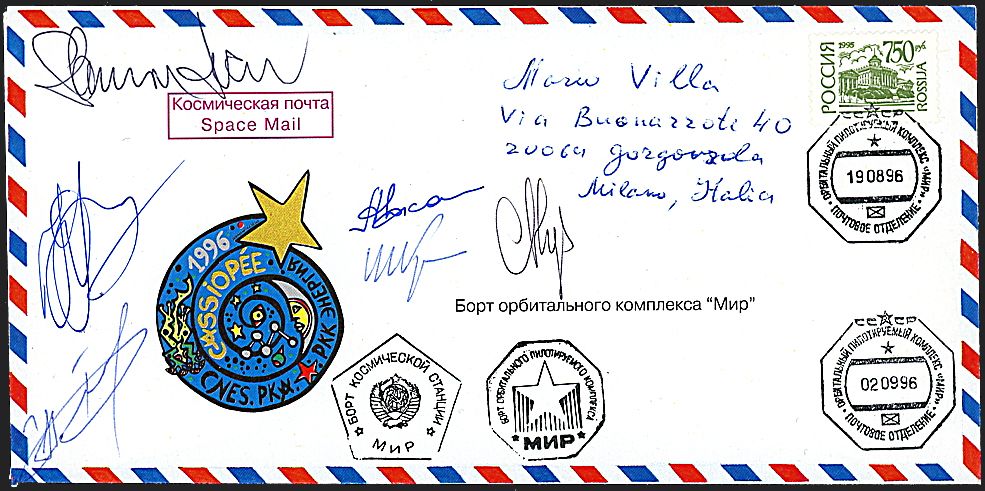 Космическая почта
Space Mail
Mario Villa
Via Buonarroti 40
20064 Gorgonzola
Milano, Italia
РОССИЯ
1995
750 руб
ROSSIJA
СССР
ОРБИТАЛЬНЫЙ ПИЛОТИРУЕМЫЙ КОМПЛЕКС «МИР»
190896
ПОЧТОВОЕ ОТДЕЛЕНИЕ
1996
CASSIOPÉE
CNES. РКА.
РКК ЭНЕРГИЯ
Борт орбитального комплекса “Мир”
БОРТ КОСМИЧЕСКОЙ СТАНЦИИ
МИР
БОРТ ОРБИТАЛЬНОГО ПИЛОТИРУЕМОГО КОМПЛЕКСА
МИР
СССР
ОРБИТАЛЬНЫЙ ПИЛОТИРУЕМЫЙ КОМПЛЕКС «МИР»
020996
ПОЧТОВОЕ ОТДЕЛЕНИЕ